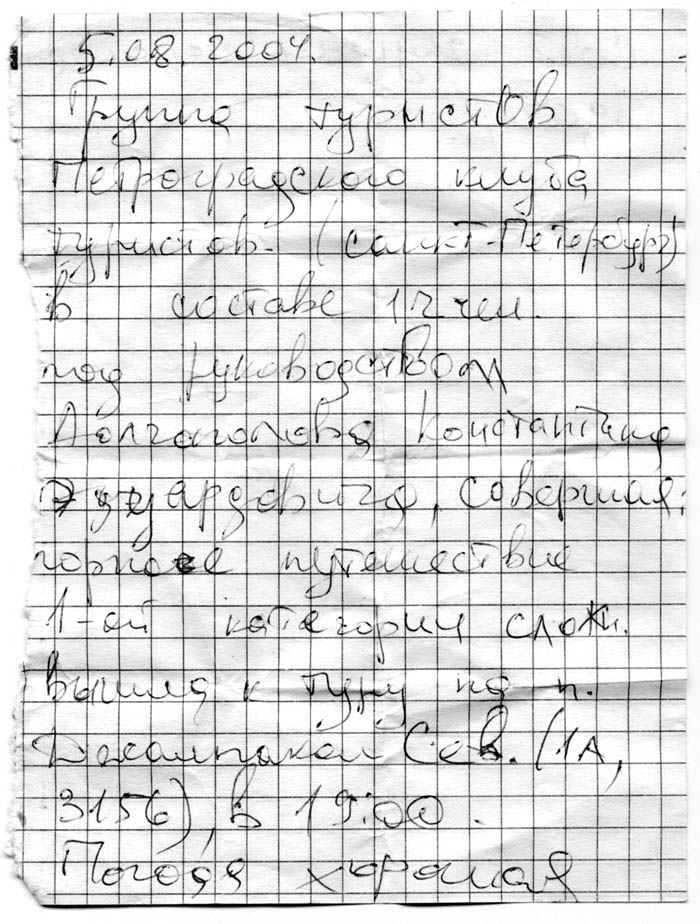 5.08.2004.
Группа туристов
Петроградского клуба
туристов. (Санкт-Петербург)
в составе 12 чел.
под руководством
Долгополова Константина
Эдуардовича, совершая
горное путешествие
1-ой категории сложн.
вышла к туру на п.
Джалпакол Сев. (1А,
3156), в 19:00.
Погода хорошая